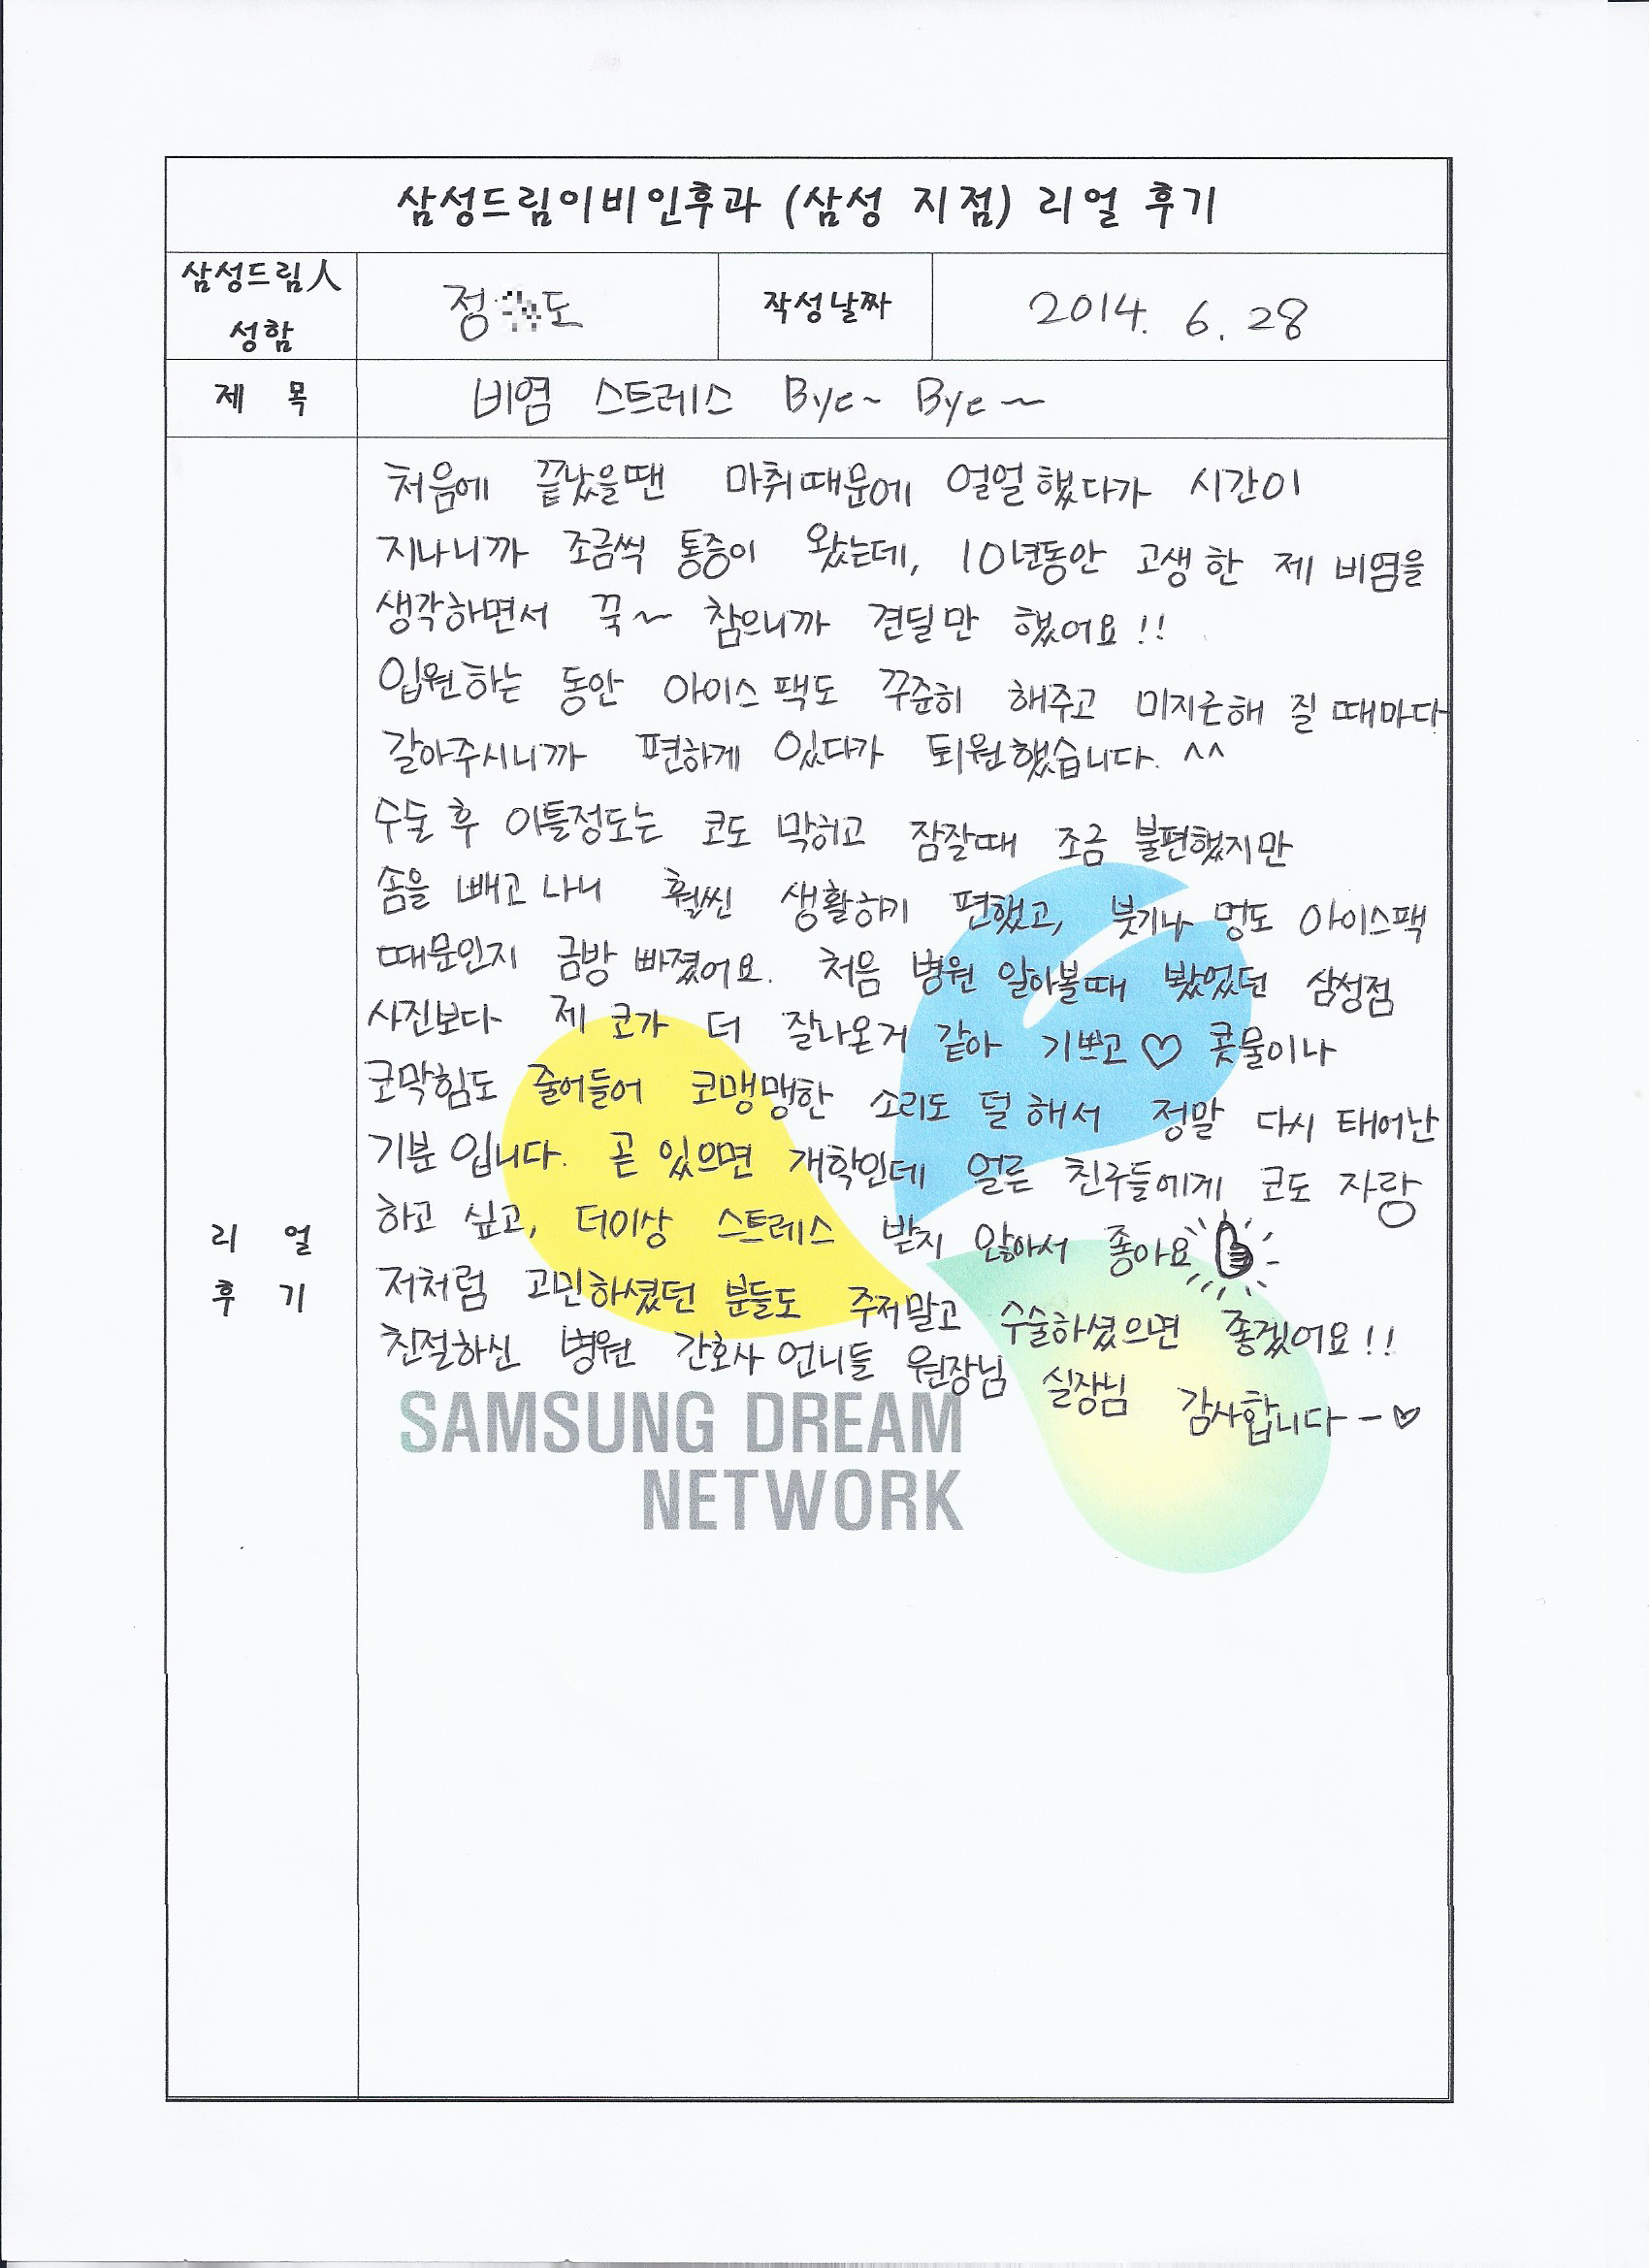 삼성드림이비인후과 (삼성 지점) 리얼 후기
삼성드림人
성함
정 도
작성날짜
2014. 6. 28
제 목
비염 스트레스 Bye~ Bye~
처음에 끝났을땐 마취때문에 얼얼했다가 시간이
지나니까 조금씩 통증이 왔는데, 10년동안 고생한 제 비염을
생각하면서 꾹~ 참으니까 견딜만 했어요!!
입원하는 동안 아이스팩도 꾸준히 해주고 미지근해 질 때마다
갈아주시니까 편하게 있다가 퇴원했습니다. ^^
수술 후 이틀정도는 코도 막히고 잠잘때 조금 불편했지만
솜을 빼고 나니 훨씬 생활하기 편했고, 붓기나 멍도 아이스팩
때문인지 금방 빠졌어요. 처음 병원 알아볼때 봤었던 삼성점
사진보다 제 코가 더 잘나온거 같아 기쁘고 ♡ 콧물이나
코막힘도 줄어들어 코맹맹한 소리도 덜해서 정말 다시 태어난
기분 입니다. 곧 있으면 개학인데 얼른 친구들에게 코도 자랑
하고 싶고, 더이상 스트레스 받지 않아서 좋아요
저처럼 고민하셨던 분들도 주저말고 수술하셨으면 좋겠어요!!
친절하신 병원 간호사 언니들 원장님 실장님 감사합니다-♡
리 얼
후 기
SAMSUNG DREAM
NETWORK